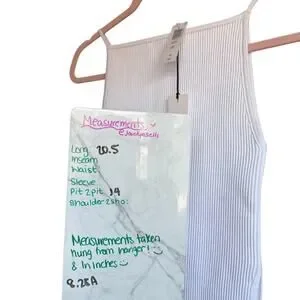 Measurements
Long 20.5
Inseam
Waist
Sleeve
Pit 2 pit 14
Shoulder 2 sho:
Measurements taken
hung from hanger!
& In inches
8.28A